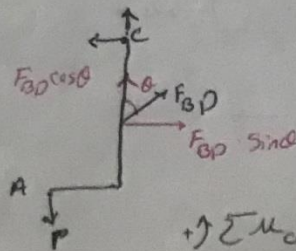 C
F_BD cosθ
θ
F_BD
F_BD sinθ
A
P
+↑ΣM_c